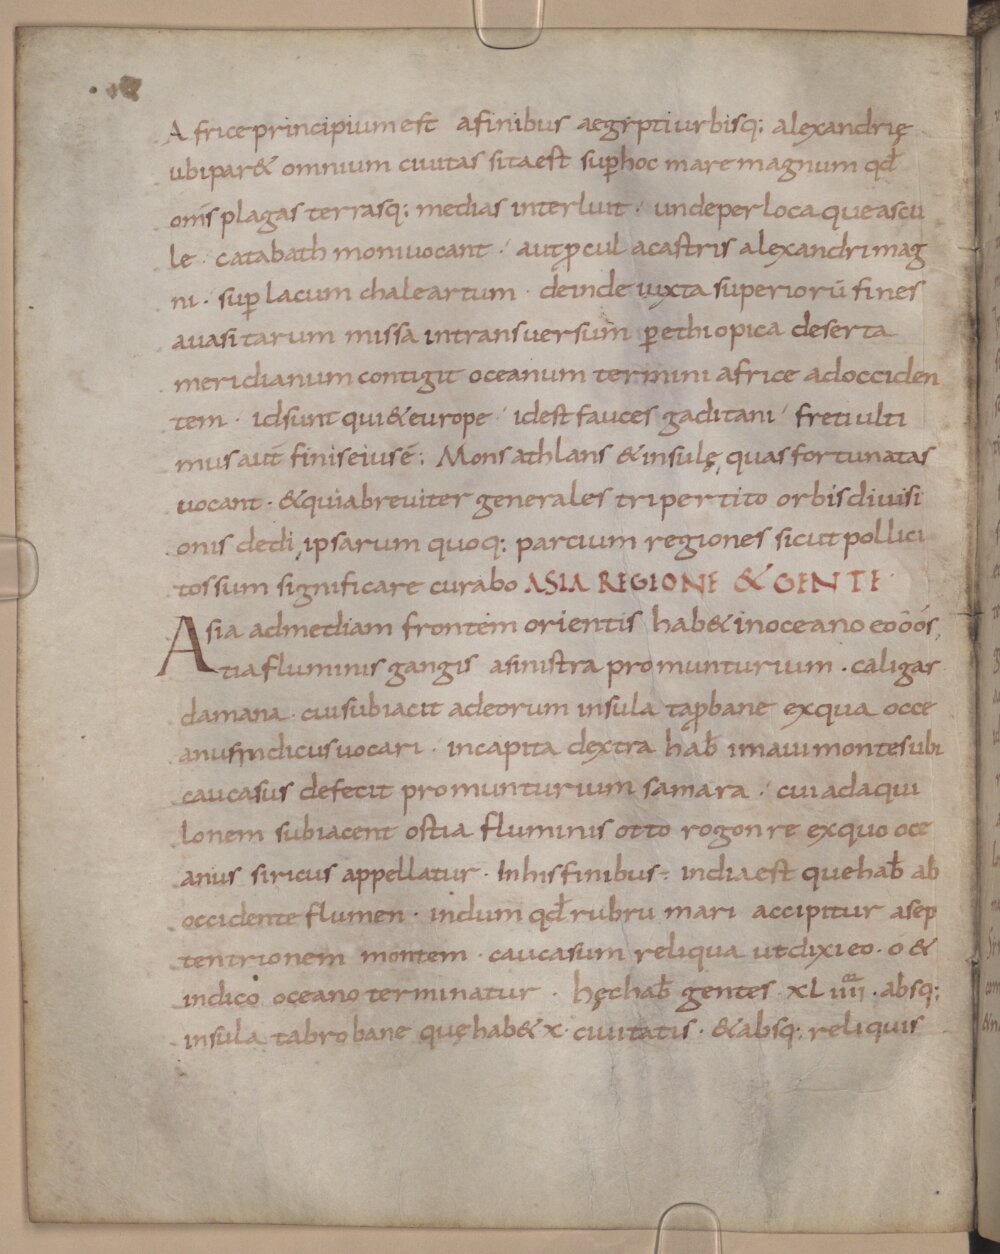 Africe principium est afinibus aegrpti urbisq; alexandrię
ubi par& omnium ciuitas sita est sup̱ hoc mare magnum qđ
om̅s plagas terrasq; medias interluit · unde per loca que ascu
le · catabathmon iuocant · aut p̱cul acastris alexandri mag
ni · sup̱ lacum chaleartum · deinde iuxta superiorū fines
auasitarum missa intransuersum p̱ ethiopica deserta
meridianum contigit oceanum termini africe adocciden
tem · id sunt qui & europe · id est fauces gaditani freti ulti
mus aut̄ finis eius ē; Mons athlans & insulę quas fortunatas
uocant · & quia breuiter generales tripertito orbis diuisi
onis dedi, ipsarum quoq; partium regiones sicut pollici
tos sum significare curabo ASIA REGIONE & GENTE ·
Asia admediam frontem orientis hab& inoceano eoóós
tia fluminis gangis asinistra promunturium · caligar
damana · cui subiacit adeorum insula tap̱bane exqua occe
anus indicus uocari · incapita dextra hab̄ imaui monte subi
caucasus defecit promunturium samara · cui adaqui
lonem subiacent ostia fluminis otto rogonre exquo oce
anus siricus appellatur · Inhis finibus · india est que hab̄ ab
occidente flumen · indum qđ rubru mari accipitur asep
tentrionem montem · caucasum reliqua ut dixi eo · o &
indico oceano terminatur · hęc hab̄ gentes · XL IIII · absq;
insula tabrobane quę hab& x · ciuitatis · & absq; reliquis